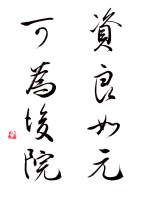 資良如元
可為後院